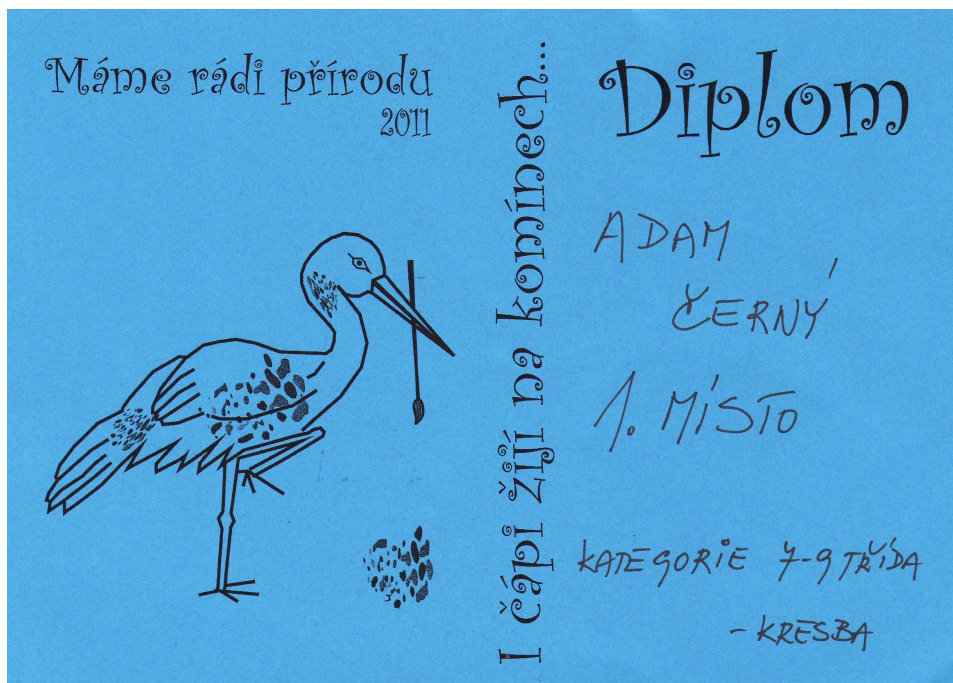 Máme rádi přírodu
2011
I čápi žijí na komínech...
Diplom
ADAM
ČERNÝ
1. MÍSTO
KATEGORIE 7-9 TŘÍDA
- KRESBA